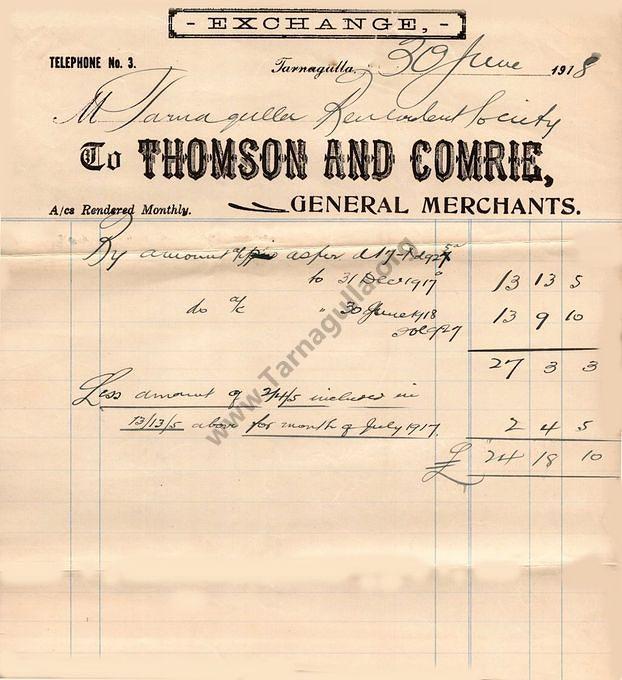 - EXCHANGE, -
TELEPHONE No. 3.
Tarnagulla, 30 June 1918
M Tarnagulla Benevolent Society
To THOMSON AND COMRIE,
A/cs Rendered Monthly. GENERAL MERCHANTS.
By amount as per
to 31 Dec 1917 13 13 5
do a/c " 30 June 1918 13 9 10
27 3 3
Less amount of 2/4/5 included in
13/13/5 above for month of July 1917. 2 4 5
£ 24 18 10
www.Tarnagulla.org